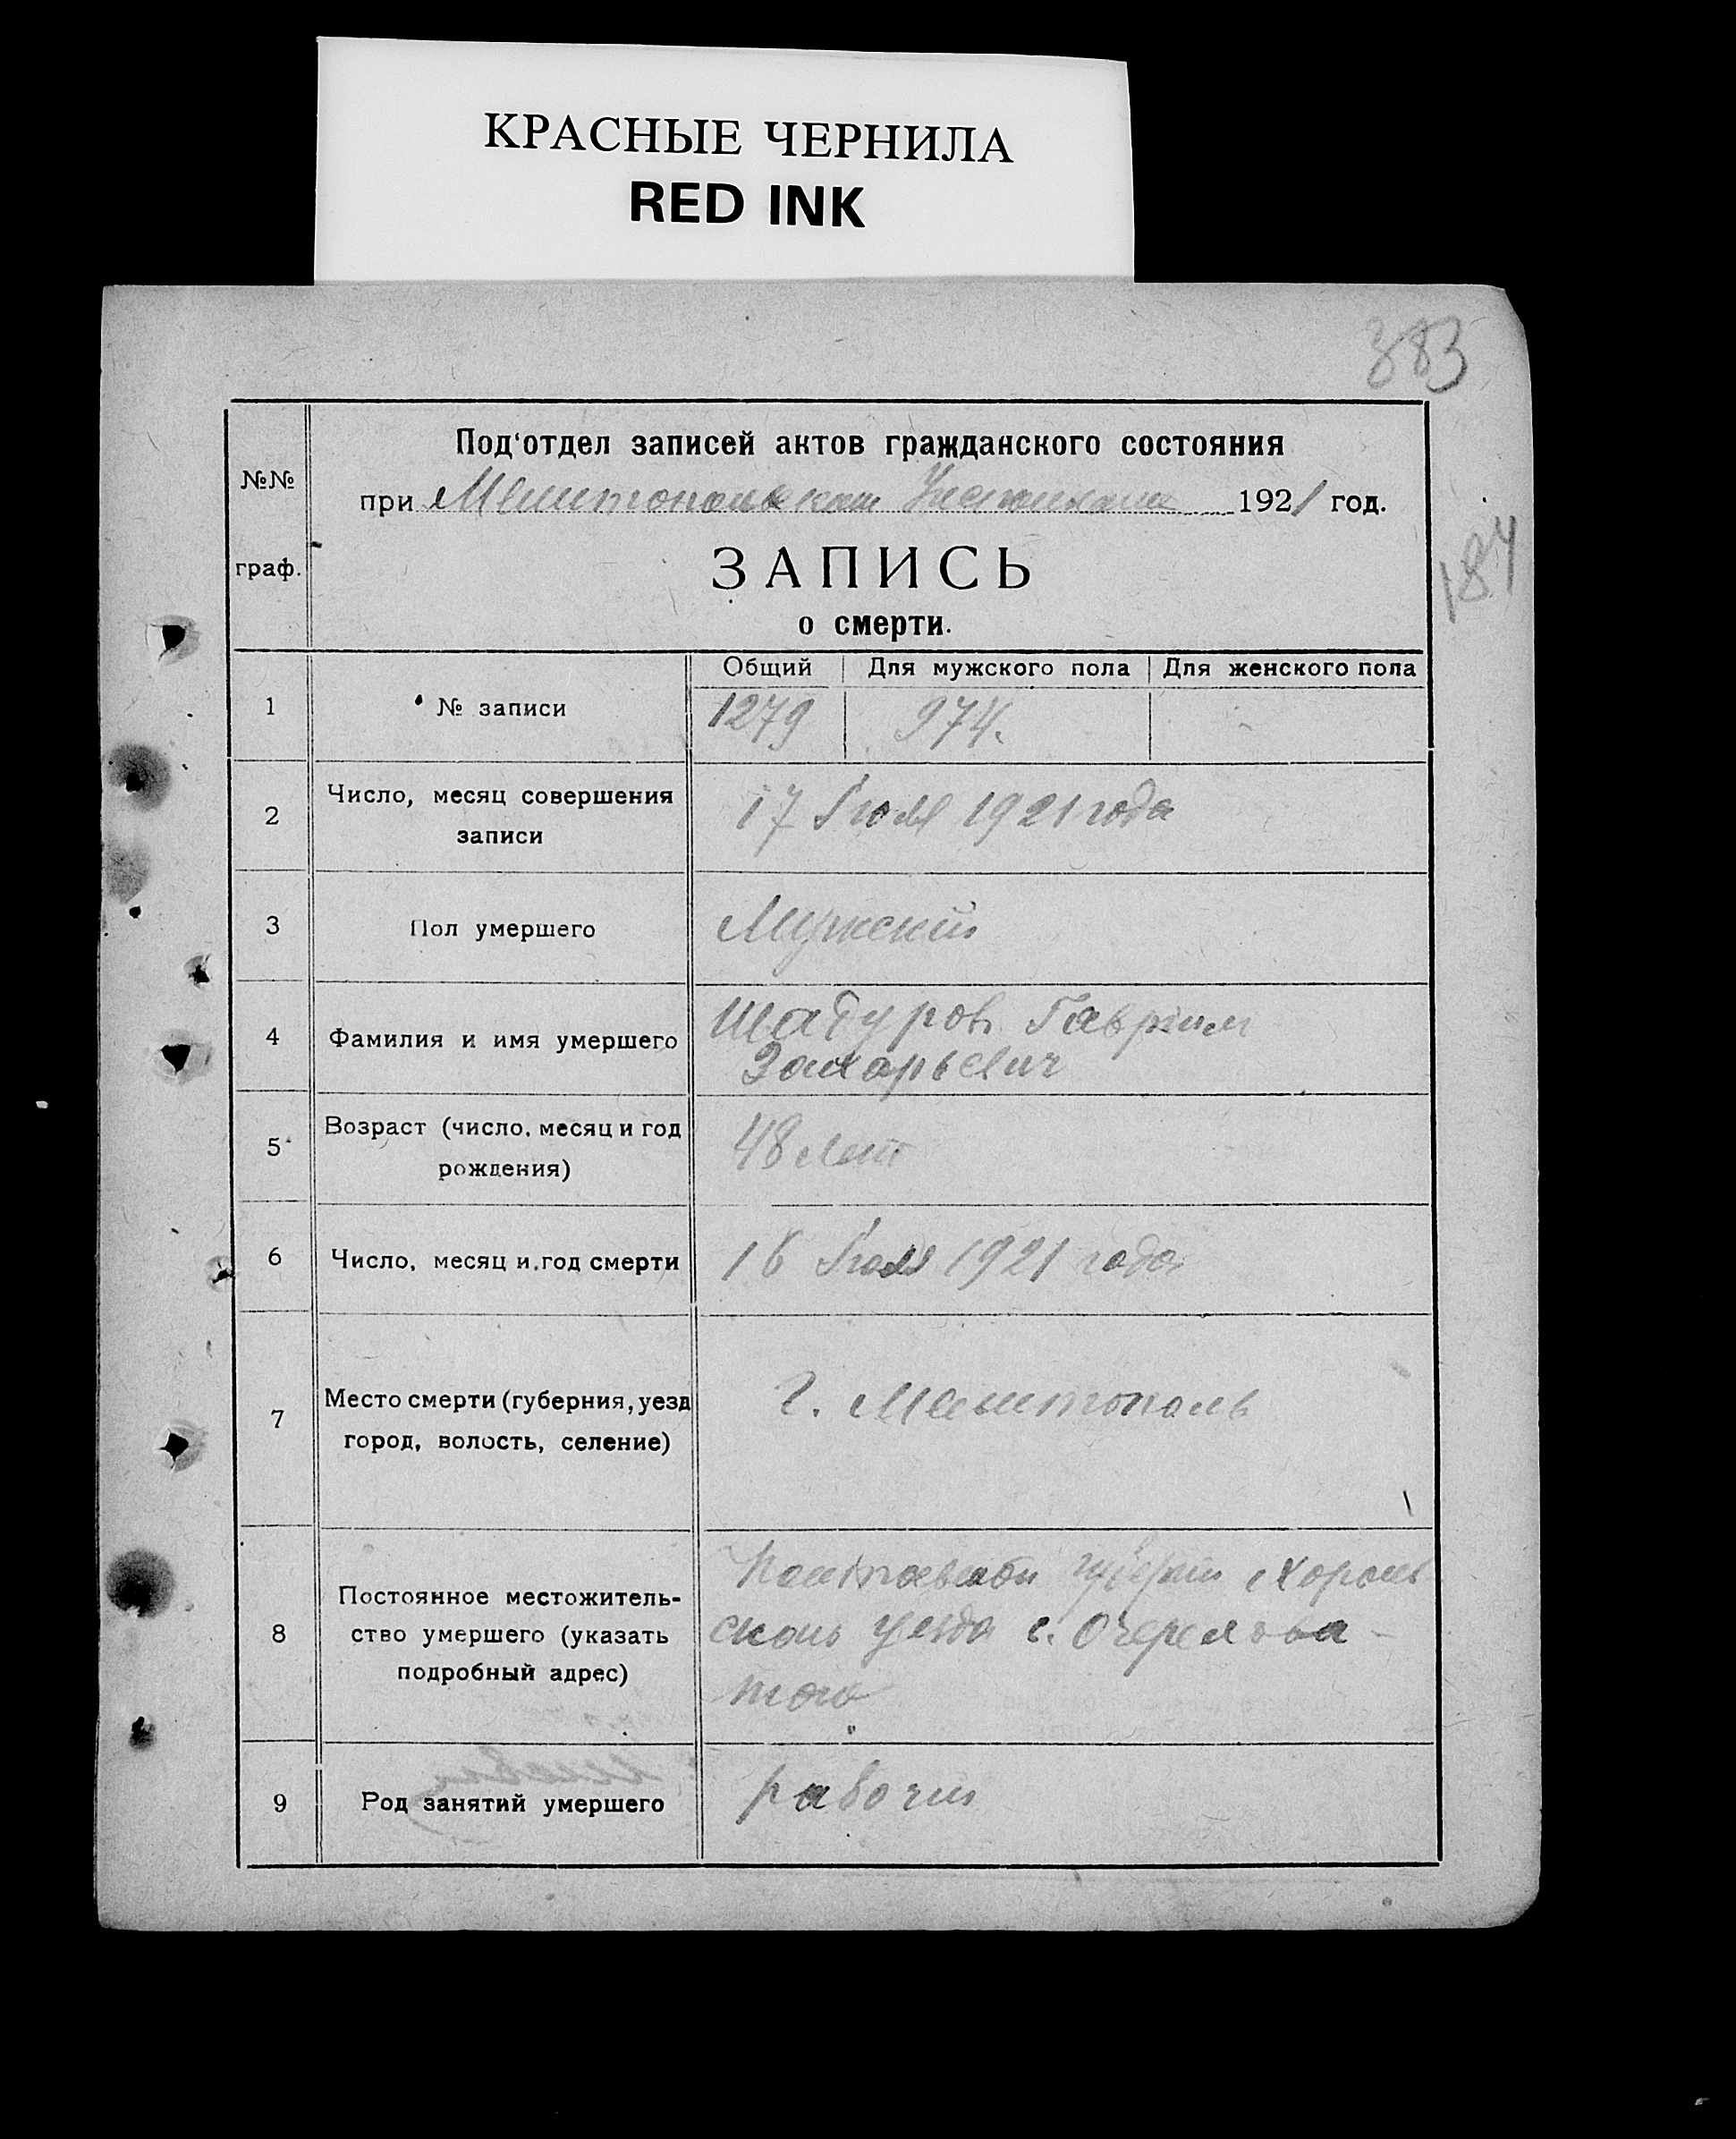 КРАСНЫЕ ЧЕРНИЛА
RED INK
383
Под'отдел записей актов гражданского состояния
№№
при Мелитопольском 1921 год.
184
граф.
ЗАПИСЬ
о смерти.
Общий Для мужского пола Для женского пола
1 № записи 1279 974. -
2 Число, месяц совершения записи 17 Июля 1921 года
3 Пол умершего Мужский
4 Фамилия и имя умершего Шабуров Гавриил
Захарьевич
5 Возраст (число, месяц и год рождения) 48 лет
6 Число, месяц и год смерти 16 Июля 1921 года
7 Место смерти (губерния, уезд
город, волость, селение) г. Мелитополь
8 Постоянное местожитель-
ство умершего (указать
подробный адрес) Полтавской губерн Хороль
ской уезда с.
9 Род занятий умершего рабочий